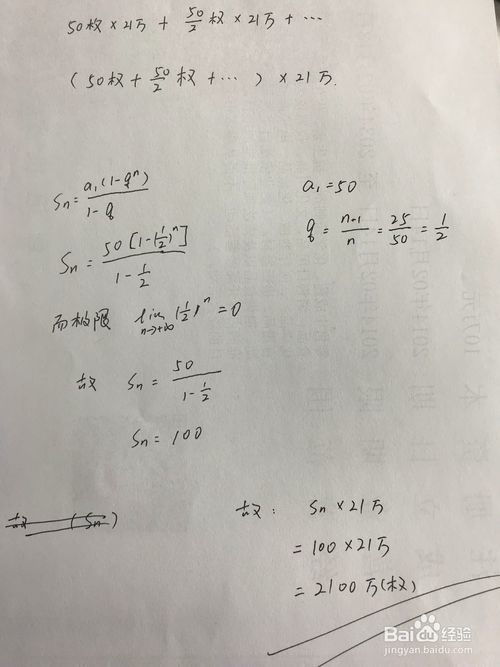 50枚×21万 + 50/2 枚×21万 + …
(50枚 + 50/2 枚 + …) ×21万.
Sn = a₁(1-qⁿ) / 1-q
a₁=50
q = n+1/n = 25/50 = 1/2
Sn = 50[1-(1/2)ⁿ] / 1-1/2
而极限 lim n→+∞ (1/2)ⁿ = 0
故 Sn = 50 / 1-1/2
Sn = 100
故 (Sn)
故: Sn×21万
= 100×21万
= 2100万(枚)
Baidu经验
jingyan.baidu.com